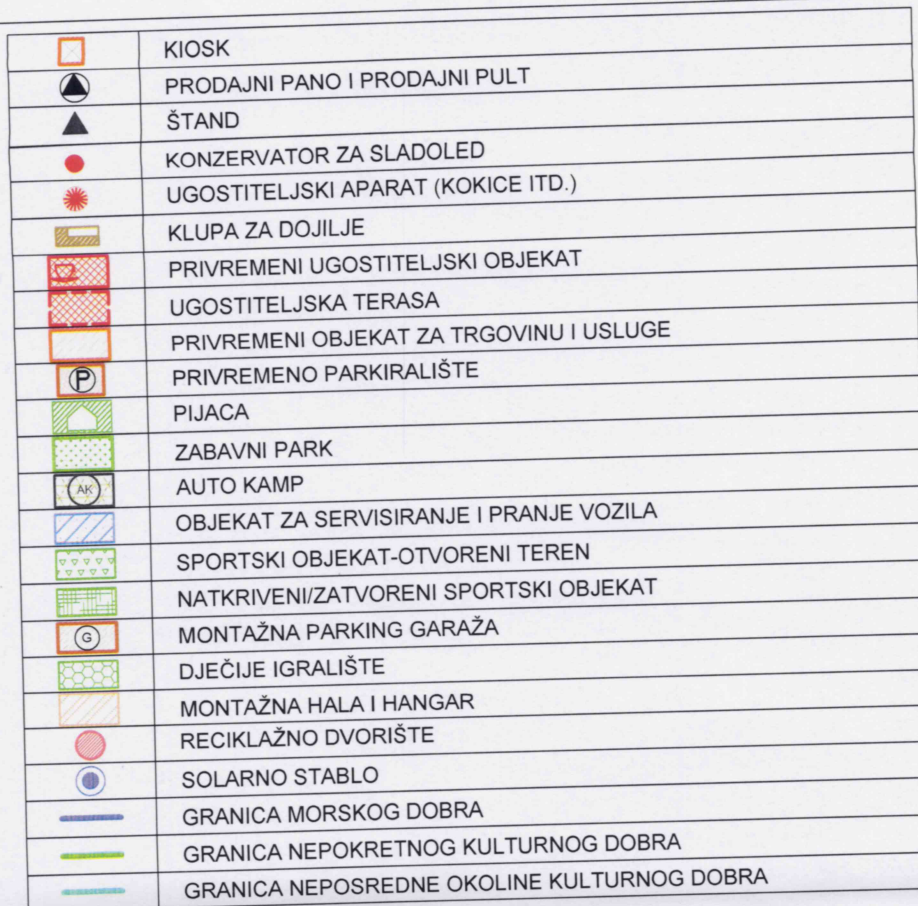 KIOSK
PRODAJNI PANO I PRODAJNI PULT
ŠTAND
KONZERVATOR ZA SLADOLED
UGOSTITELJSKI APARAT (KOKICE ITD.)
KLUPA ZA DOJILJE
PRIVREMENI UGOSTITELJSKI OBJEKAT
UGOSTITELJSKA TERASA
PRIVREMENI OBJEKAT ZA TRGOVINU I USLUGE
P PRIVREMENO PARKIRALIŠTE
PIJACA
ZABAVNI PARK
AK AUTO KAMP
OBJEKAT ZA SERVISIRANJE I PRANJE VOZILA
SPORTSKI OBJEKAT-OTVORENI TEREN
NATKRIVENI/ZATVORENI SPORTSKI OBJEKAT
G MONTAŽNA PARKING GARAŽA
DJEČIJE IGRALIŠTE
MONTAŽNA HALA I HANGAR
RECIKLAŽNO DVORIŠTE
SOLARNO STABLO
GRANICA MORSKOG DOBRA
GRANICA NEPOKRETNOG KULTURNOG DOBRA
GRANICA NEPOSREDNE OKOLINE KULTURNOG DOBRA